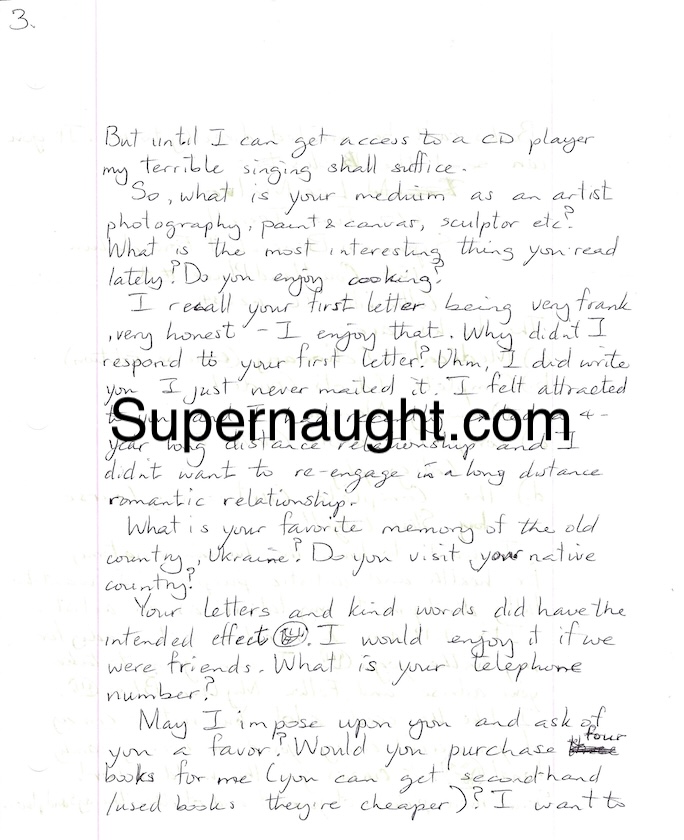 3.
But until I can get access to a CD player
my terrible singing shall suffice.
So, what is your medium as an artist
photography, paint & canvas, sculptor etc?
What is the most interesting thing you read
lately? Do you enjoy cooking?
I recall your first letter being very frank
, very honest - I enjoy that. Why didn't I
respond to your first letter? Uhm, I did write
you I just never mailed it. I felt attracted
to you and I had 4-
Supernaught.com
year long distance relationship and I
didn't want to re-engage in a long distance
romantic relationship.
What is your favorite memory of the old
country, Ukraine? Do you visit your native
country?
Your letters and kind words did have the
intended effect. I would enjoy it if we
were friends. What is your telephone
number?
May I impose upon you and ask of
you a favor? Would you purchase four
books for me (you can get secondhand
/used books they're cheaper)? I want to